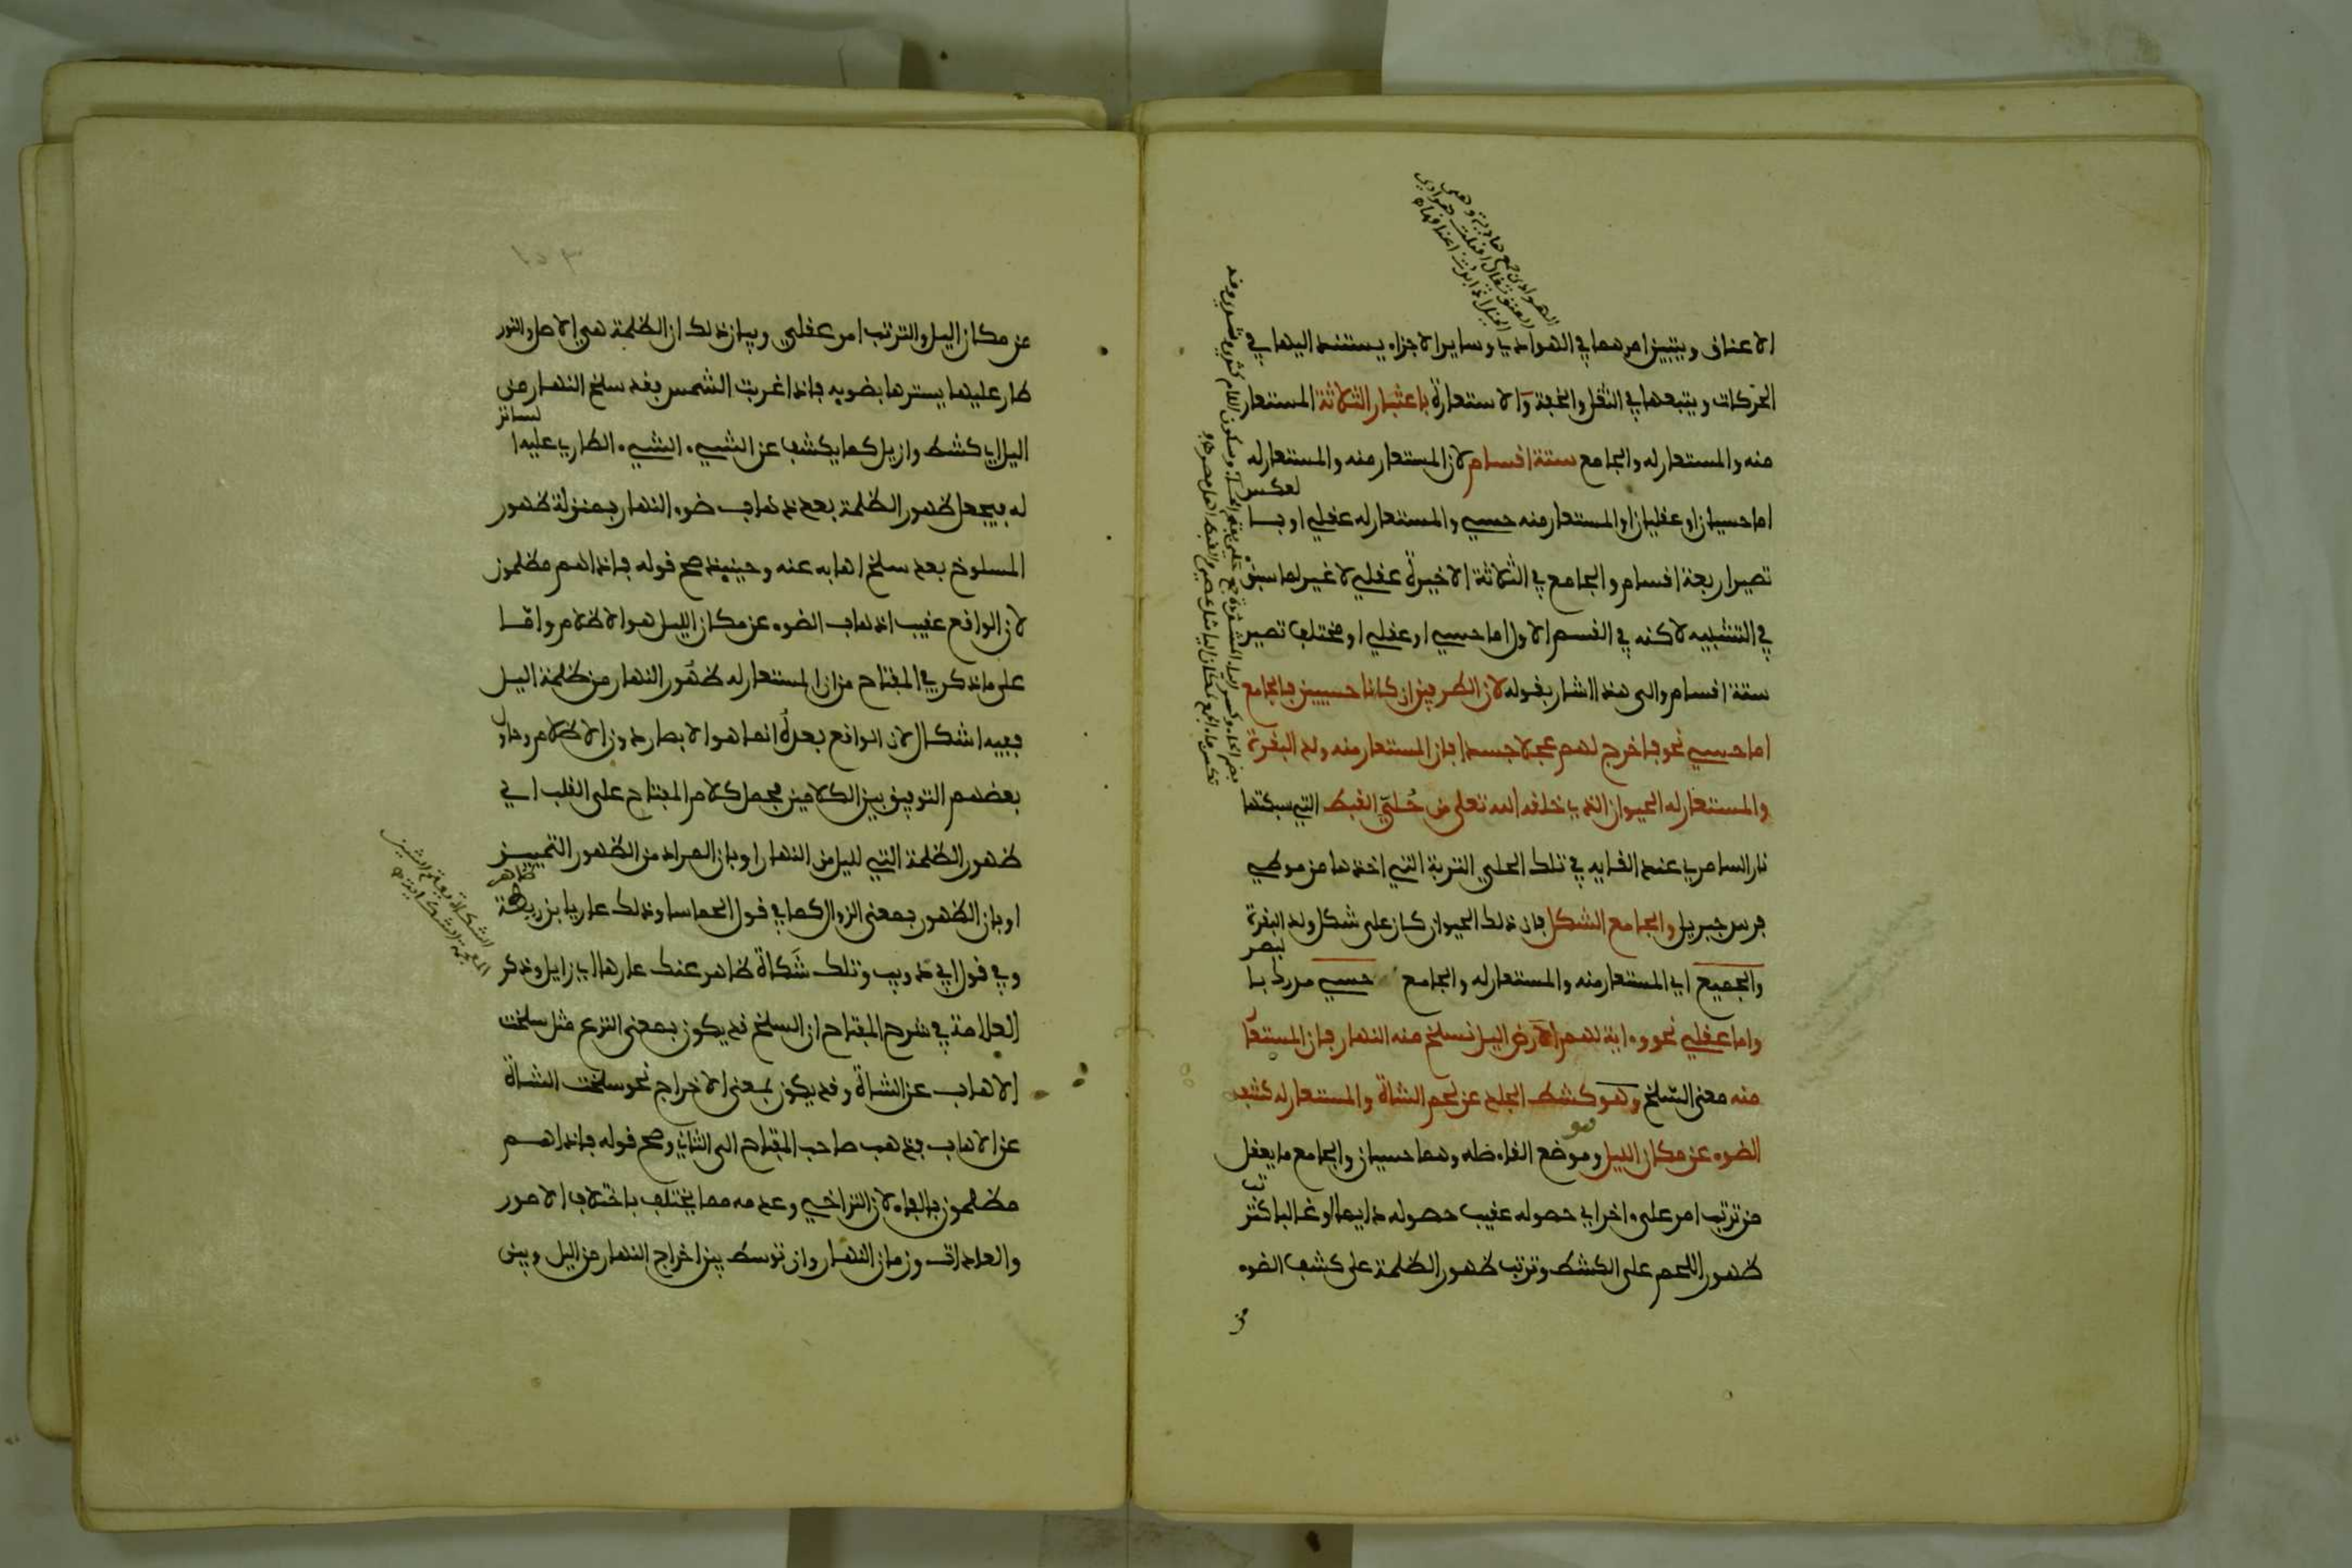 الاعناق ويتبين امرهما في الهوادي وساير الاجزاء يستند اليها في
الحركات ويتبعها في الثقل والخفة والاستعارة باعتبار الثلاثة المستعار
منه والمستعار له والجامع ستة اقسام لان المستعار منه والمستعار له
اما حسيان او عقليان او المستعار منه حسي والمستعار له عقلي او بالعكس
تصير اربعة اقسام والجامع في الثلاثة الاخيرة عقلي لا غير لما سبق
في التشبيه لاكنه في القسم الاول اما حسي او عقلي او مختلف تصير
ستة اقسام والى هذا اشار بقوله لان الطرفين ان كانا حسيين فالجامع
اما حسي نحو فاخرج لهم عجلا جسدا فان المستعار منه ولد البقرة
والمستعار له الحيوان الذي خلقه الله تعلى من حُليّ القبط التي سبكتها
نار السامري عند القايه في تلك الحلي التربة التي اخذها من موطي
فرس جبريل والجامع الشكل فان ذلك الحيوان كان على شكل ولد البقرة
والجميع اي المستعار منه والمستعار له والجامع حسي مدرك بالبصر
واما عقلي نحو وءاية لهم اليل نسلخ منه النهار فان المستعار
منه معنى السلخ وهو كشط الجلد عن لحم الشاة والمستعار له كشف
الضوء عن مكان الليل وهو موضع القاء ظله وهما حسيان والجامع ما يعقل
من ترتب امر على ءاخر اي حصوله عقيب حصوله دايما او غالبا كترتب
ظهور اللحم على الكشط وترتب ظهور الظلمة على كشف الضوء
من
الهوادي جمع هادية وهي
العنق يقال اقبلت هوادي
الخيل اذا بدت اعناقها
عن مكان اليل والترتب امر عقلي وبيان ذلك ان الظلمة هي الاصل والنور
طار عليها يسترها بضويه فاذا غربت الشمس فقد سلخ النهار من
اليل اي كشط وازيل كما يكشف عن الشيء الشيء الطاري عليه الساتر
له فيجعل ظهور الظلمة بعد ذهاب ضوء النهار بمنزلة ظهور
المسلوخ بعد سلخ اهابه عنه وحينيذ صح قوله فاذا هم مظلمون
لان الواقع عقيب اذهاب الضوء عن مكان الليل هو الاظلام واما
على ما ذكر في المفتاح من ان المستعار له ظهور النهار من ظلمة اليل
ففيه اشكال لان الواقع بعده انما هو الابصار دون الاظلام وحاول
بعضهم التوفيق بين الكلامين فحمل كلام المفتاح على القلب اي
ظهور الظلمة التي لليل من النهار او بان المراد من الظهور التمييز
او بان الظهور بمعنى الزوال كما في قول الحماسا وذلك عار يا بن ريطة ظاهر
وفي قول ابي ذويب وتلك شَكاة ظاهر عنك عارها اي زايل وذكر
العلامة في شرح المفتاح ان السلخ قد يكون بمعنى النزع مثل سلخت
الاهاب عن الشاة وقد يكون بمعنى الاخراج نحو سلخت الشاة
عن الاهاب فذهب صاحب المفتاح الى الثاني وصح قوله فاذا هم
مظلمون بالفاء لان التراخي وعدمه مما يختلف باختلاف الامور
والعادات وزمان النهار وان توسط بين اخراج النهار من اليل وبين